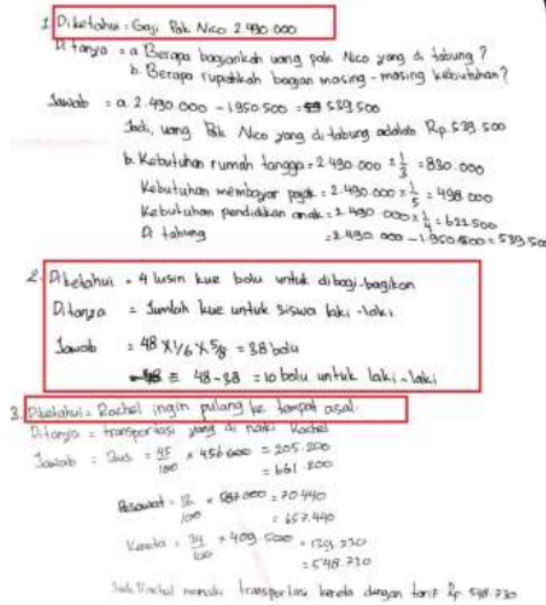 1. Diketahui = Gaji Pak Nico 2.490.000
Ditanya = a Berapa bagiankah uang pak Nico yang di tabung?
b. Berapa rupiahkah bagian masing-masing kebutuhan?
Jawab = a. 2.490.000 - 1950.500 = 539.500
Jadi, uang Pak Nico yang di tabung adalah Rp.539.500
b. Kebutuhan rumah tangga = 2.490.000 x 1/3 = 830.000
Kebutuhan membayar pajak = 2.490.000 x 1/5 = 498.000
Kebutuhan pendidikan anak = 2.490 000 x 1/4 = 622.500
Di tabung = 2.490 000 - 1.950.500 = 539.500
2. Diketahui = 4 lusin kue bolu untuk dibagi-bagikan
Ditanya = Jumlah kue untuk siswa laki-laki
Jawab = 48 x 1/6 x 5/8 = 38 bolu
= 48 - 38 = 10 bolu untuk laki-laki
3. Diketahui = Rachel ingin pulang ke tempat asal.
Ditanya = transportasi yang di naiki Rachel
Jawab = Bus = 45/100 x 456.000 = 205.200
= 661.200
Pesawat = 12/100 x 587.000 = 70.440
= 657.440
Kereta = 34/100 x 409.500 = 139.230
= 548.730
Jadi, Rachel menaiki transportasi kereta dengan tarif Rp. 548.730